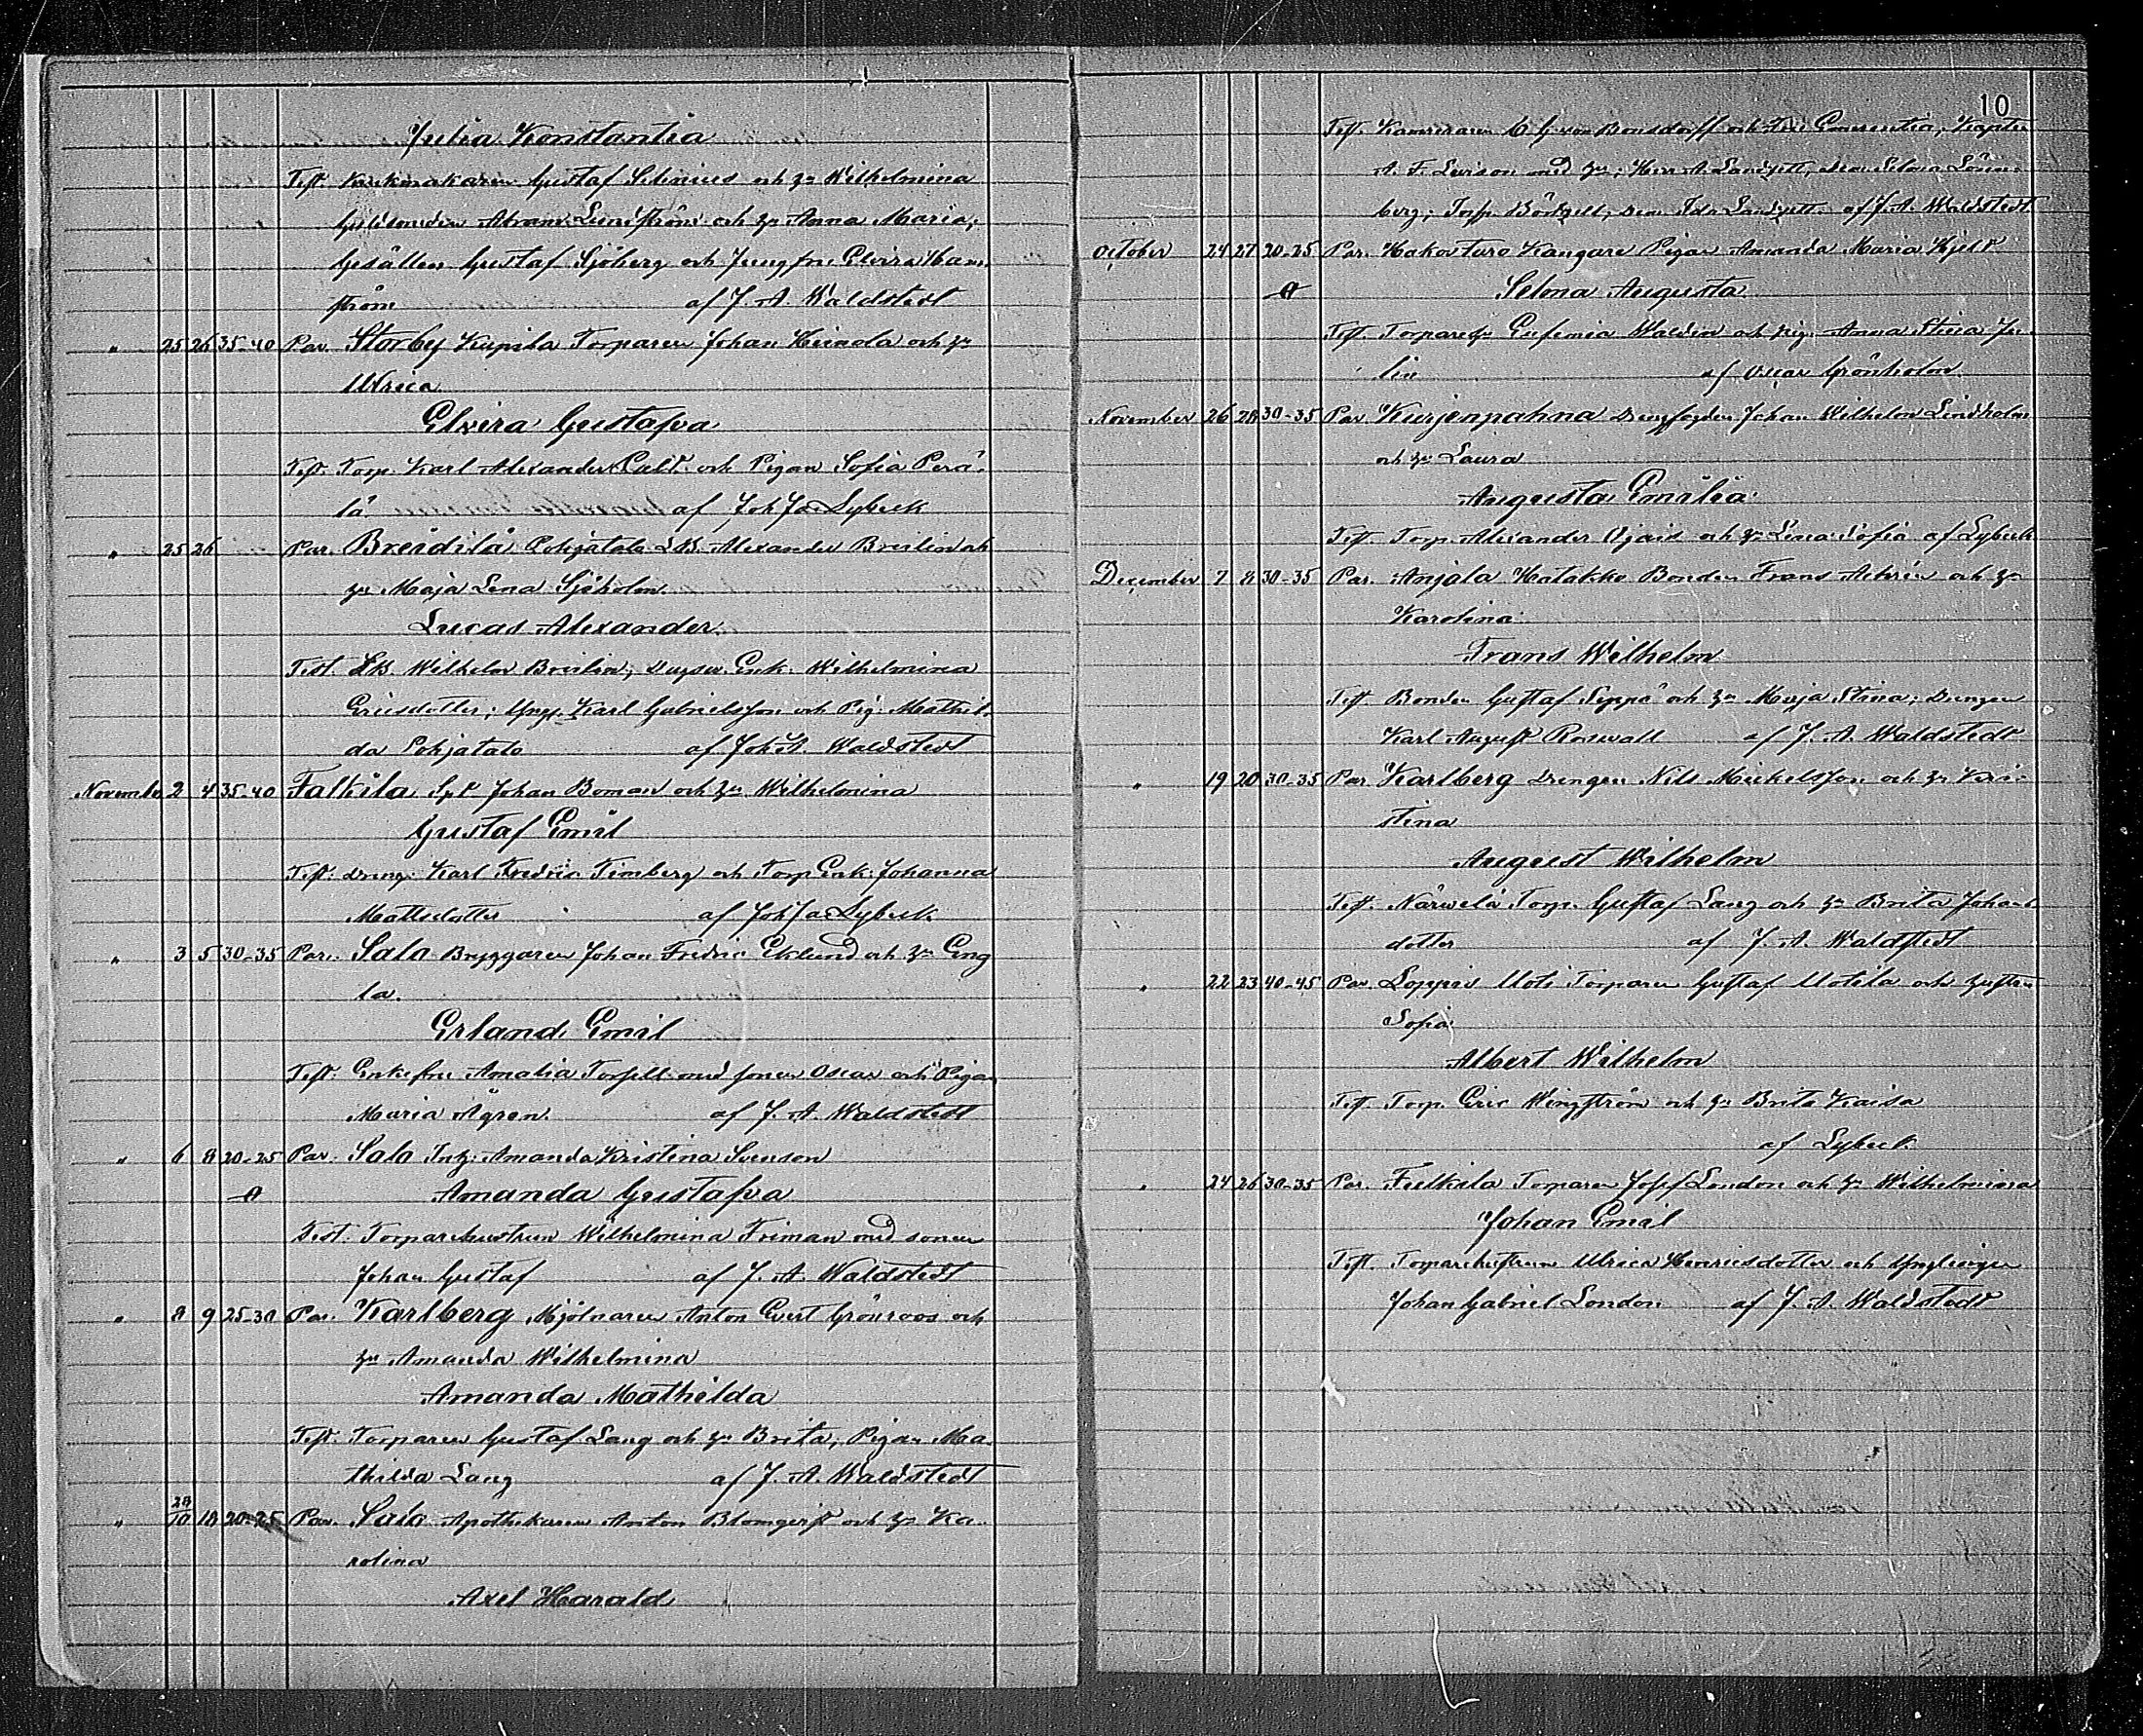 Julia Konstantia
Test. Kakmakaren Gustaf Selinius och h:u Wilhelmina
Guldsmeden Abram Lundström och h:u Anna Maria;
Gesällen Gustaf Sjöberg och Jungfru Elvira Ham-
ström af J. A. Waldstedt
" 25 26 35-40 Par. Storby Kupila Torparen Johan Heinola och h:u
Ulrica
Elvira Gustafva
Test. Torp. Karl Alexander och Pigan Sofia Perä-
lä af Joh Jac Lybeck
" 25 26 Par. Breidilä Pohjatalo LB. Alexander Breilin och
h:u Maja Lena Sjöholm
Lucas Alexander.
Test. LB. Wilhelm Breilin; Enk. Wilhelmina
Ericsdotter; Yngl. Karl Gabrielsson och Pig. Mathil-
da Pohjatalo af Joh A. Waldstedt
November 2 4 35-40 Falkila Spl Johan Boman och h:u Wilhelmina
Gustaf Emil
Test. Dreng. Karl Fredric Timberg och Torp Enk: Johanna
Mattsdotter af Joh Jac Lybeck
" 3 5 30-35 Par. Salo Bryggaren Johan Fredric Eklund och h:u Eng
la.
Erland Emil
Test. Enkefru Amalia Torsell med sonen Oscar och Pigan
Maria Ågren. af J. A. Waldstedt
" 6 8 20-25 Par. Salo Inh: Amanda Kristina Svenson
Amanda Gustafva
Test. Torparehustrun Wilhelmina Friman med sonen
Johan Gustaf af J. A. Waldstedt
" 8 9 25-30 Par. Karlberg Mjölnaren Anton Evert Grönroos och
h:u Amanda Wilhelmina
Amanda Mathilda
Test. Torparen Gustaf Lang och h:u Brita, Pigan Ma-
thilda Lang af J. A. Waldstedt
" 28/10 18 20-25 Par. Salo Apothekaren Anton Blomqvist och h:u Ka-
rolina
Axel Harald
10
Test. Kamreraren C G von Bonsdorff och Fru Emerentia, Kapten
A. F. Lurson med h:u; Herr A. Landzett, Dem Selma Lönn-
berg; Dem Ida Landzett af J. A. Waldstedt
October 24 27 20-25 Par. Hakostaro Kangare Pigan Amanda Maria Hjelt
Selma Augusta
Test. Torpareh:u Eufemia Waldén och pig. Anna Stina Ju-
lin af Oscar Grönholm
November 26 28 30-35 Par. Kurjenpahna Drengfogden Johan Wilhelm Lindholm
och h:u Laura
Augusta Emilia
Test. Torp. Alexander Ojais och h:u Lisa Sofia af Lybeck
December 7 8 30-35 Par. Anjala Hatakko Bonden Frans Achrén och h:u
Karolina
Frans Wilhelm
Test. Bonden Gustaf Seppä och h:u Maja Stina; Drengen
Karl August Roswall af J. A. Waldstedt
" 19 20 30-35 Par Karlberg Drengen Nils Mickelsson och h:u Kri-
stina
August Wilhelm
Test. Närwelä Torp. Gustaf Lang och h:u Brita Johans-
dotter af J. A. Waldstedt
" 22 23 40-45 Par. Loppis Uoti Torparen Gustaf Uotila och hustru
Sofia
Albert Wilhelm
Test. Torp. Eric Wingström och h:u Brita Kaisa
af Lybeck.
" 24 26 30-35 Par. Fulkila Torparen Josef London och h:u Wilhelmina
Johan Emil
Test. Torparehustrun Ulrica Henricsdotter och Ynglingen
Johan Gabriel London. af J. A. Waldstedt